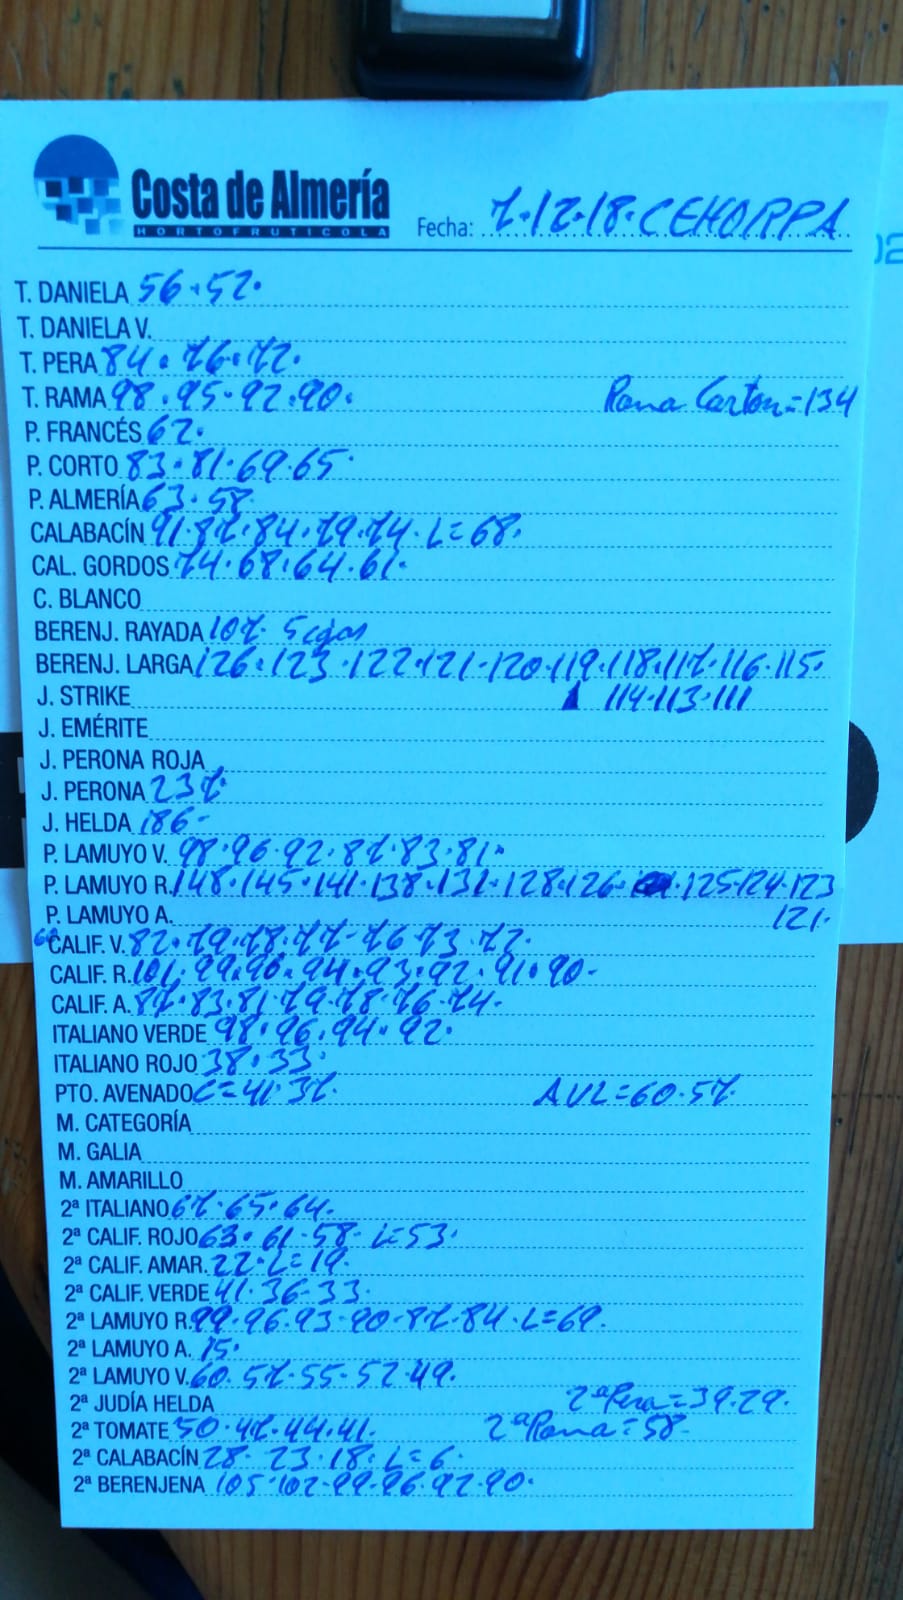 Costa de Almería
HORTOFRUTICOLA
Fecha: 7.12.18. CEHORPA
T. DANIELA 56.52.
T. DANELA V.
T. PERA 84.76.72.
T. RAMA 98.95.92.90. Rama Carton=134
P. FRANCÉS 62.
P. CORTO 83.81.69.65.
P. ALMERÍA 63.58
CALABACÍN 91.87.84.79.74.L=68.
CAL. GORDOS 74.68.64.61.
C. BLANCO
BERENJ. RAYADA 107. 5 cajas
BERENJ. LARGA 126.123.122.121.120.119.118.117.116.115.
J. STRIKE 114.113.111
J. EMÉRITE
J. PERONA ROJA
J. PERONA 237.
J. HELDA 186-
P. LAMUYO V. 98.96.92.87.83.81.
P. LAMUYO R. 148.145.141.138.131.128.126.125.124.123
P. LAMUYO A. 121.
CALIF. V. 82.79.78.77-76.73.72.
CALIF. R. 101.99.96.94.93.92.91.90-
CALIF. A. 87.83.81.79.78.76.74.
ITALIANO VERDE 98.96.94.92.
ITALIANO ROJO 38.33.
PTO. AVENADO C=41.37. AVL=60.57.
M. CATEGORÍA
M. GALIA
M. AMARILLO
2ª ITALIANO 67.65.64.
2ª CALIF. ROJO 63.61.58-L=53.
2ª CALIF. AMAR. 22.L=19.
2ª CALIF. VERDE 41.36-33.
2ª LAMUYO R. 99.96.93.90.87.84.L=69.
2ª LAMUYO A. 75.
2ª LAMUYO V. 60.57.55.52.49.
2ª JUDÍA HELDA 2ª Pera=39.29.
2ª TOMATE 50.47.44.41. 2ª Rama=58-
2ª CALABACÍN 28-23.18.L=6.
2ª BERENJENA 105.102.99.96.92.90.